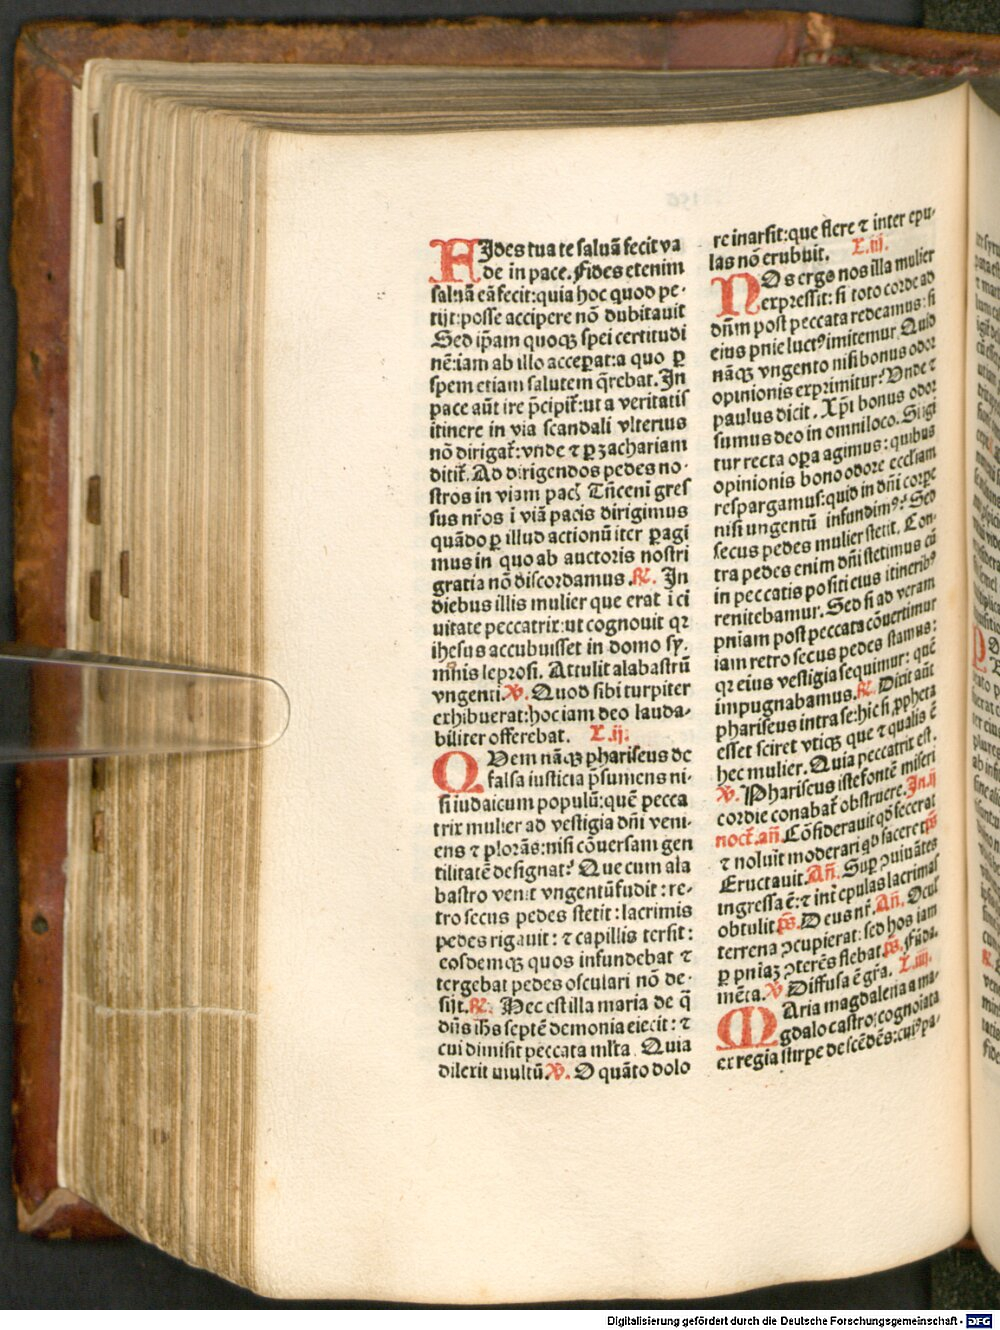 FIdes tua te saluā fecit va
de in pace. Fides etenim
saluā eā fecit: quia hoc quod pe-
tijt: posse accipere nō dubitauit
Sed ip̄am quoqꝫ spei certitudi
nē: iam ab illo acceꝑat: a quo ꝑ
spem etiam salutem q̄rebat. In
pace aūt ire p̄cipit̄: ut a veritatis
itinere in via scandali vlterius
nō dirigat̄: vnde ⁊ ꝑ zachariam
dicit̄. Ad dirigendos pedes no-
stros in viam
sus nr̄os ī viā pacis dirigimus
quādo ꝑ illud actionū iter ꝑagi
mus in quo ab auctoris nostri
gratia nō discordamus. ℟. In
diebus illis mulier que erat ī ci
uitate peccatrix: ut cognouit qꝛ
ihesus accubuisset in domo sy-
mōnis leprosi. Attulit alabastrū
vngenti. ℣. Quod sibi turpiter
exhibuerat: hoc iam deo lauda-
biliter offerebat. L.ij.
QUem nāqꝫ phariseus de
falsa iusticia p̄sumens ni-
si iudaicum populū: quē pecca
trix mulier ad vestigia dn̄i veni-
ens ⁊ plorās: nisi cōuersam gen
tilitatē designat? Que cum ala
bastro venit vngentū fudit: re-
tro secus pedes stetit: lacrimis
pedes rigauit: ⁊ capillis tersit:
eosdemqꝫ quos infundebat ⁊
tergebat pedes osculari nō de-
sijt. ℟. Hec est illa maria de q̄
dn̄s ih̄s septē demonia eiecit: ⁊
cui dimisit peccata ml̄ta. Quia
dilexit multū ℣. O quāto dolo
re inarsit: que flere ⁊ inter epu-
las nō erubuit. L.iij.
NOs ergo nos illa mulier
expressit: si toto corde ad
dn̄m post peccata redeamus: si
eius pn̄ie luctꝰ imitemur. Quid
nāqꝫ vngento nisi bonus odor
opinionis exprimitur? Vnde ⁊
paulus dicit. Xp̄i bonus odor
sumus deo in omni loco. Si igi
tur recta oꝑa agimus: quibus
opinionis bono odore eccl̄iam
respargamus: quid in dn̄i corꝑe
nisi ungentū infundimꝰ? Sed
secus pedes mulier stetit. Con-
tra pedes enim dn̄i stetimus cū
in peccatis positi eius itineribꝰ
renitebamur. Sed si ad veram
pn̄iam post peccata cōuertimur
iam retro secus pedes stamus:
qꝛ eius vestigia sequimur: quē
impugnabamus. ℟. Dixit aūt
phariseus intra se: hic si ꝓpheta
esset sciret vtiqꝫ que ⁊ qualis ē
hec mulier. Quia peccatrix est.
℣. Phariseus iste fontē miseri
cordie conabat̄ obstruere. In.ij
noct̄. an̄. Cōsiderauit qd̄ fecerat
⁊ noluit moderari qd̄ faceret ps̄
Eructauit. An̄. Suꝑ ꝯuiuātes
ingressa ē: ⁊ int̄ epulas lacrimas
obtulit ps̄. Deus nr̄. An̄. Ocul
terrena ꝯcupierat: sed hos iam
ꝑ pn̄iaꝫ ꝯterēs flebat ps̄. Fūda-
mēta. ℣ Diffusa ē gr̄a. L.iiij.
MAria magdalena a ma-
gdalo castro: cognoīata
ex regia stirpe descēdēs: cuiꝰ pa-
Digitalisierung gefördert durch die Deutsche Forschungsgemeinschaft - DFG